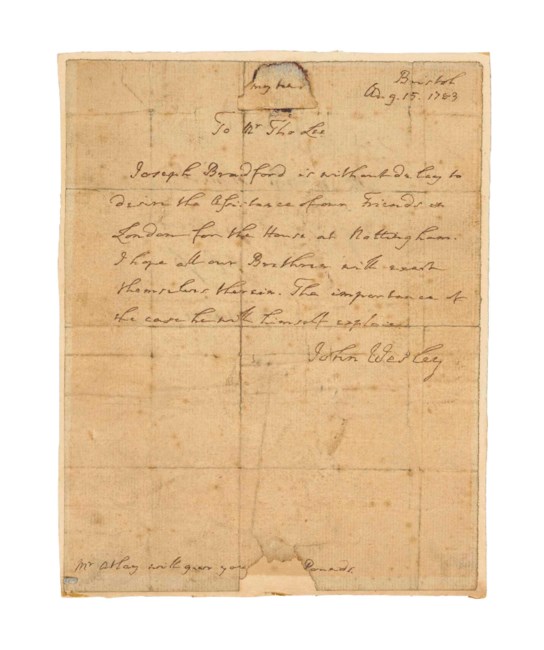 Bristol
Aug. 15. 1783
To Mr Tho Lee
Joseph Bradford is without delay to
desire the Assistance of our Friends in
London for the House at Nottingham.
I hope all our Brethren will exert
themselves therein. The importance of
the case he will himself explain.
John Wesley
Mr Atlay will give you Pounds.